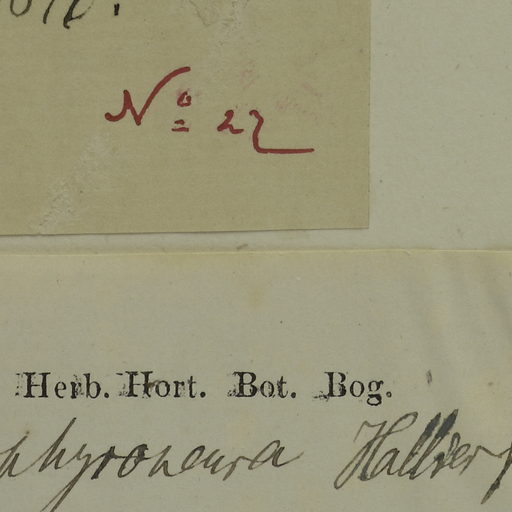 Nº 22
Herb. Hort. Bot. Bog.
phyroneura Hallier f